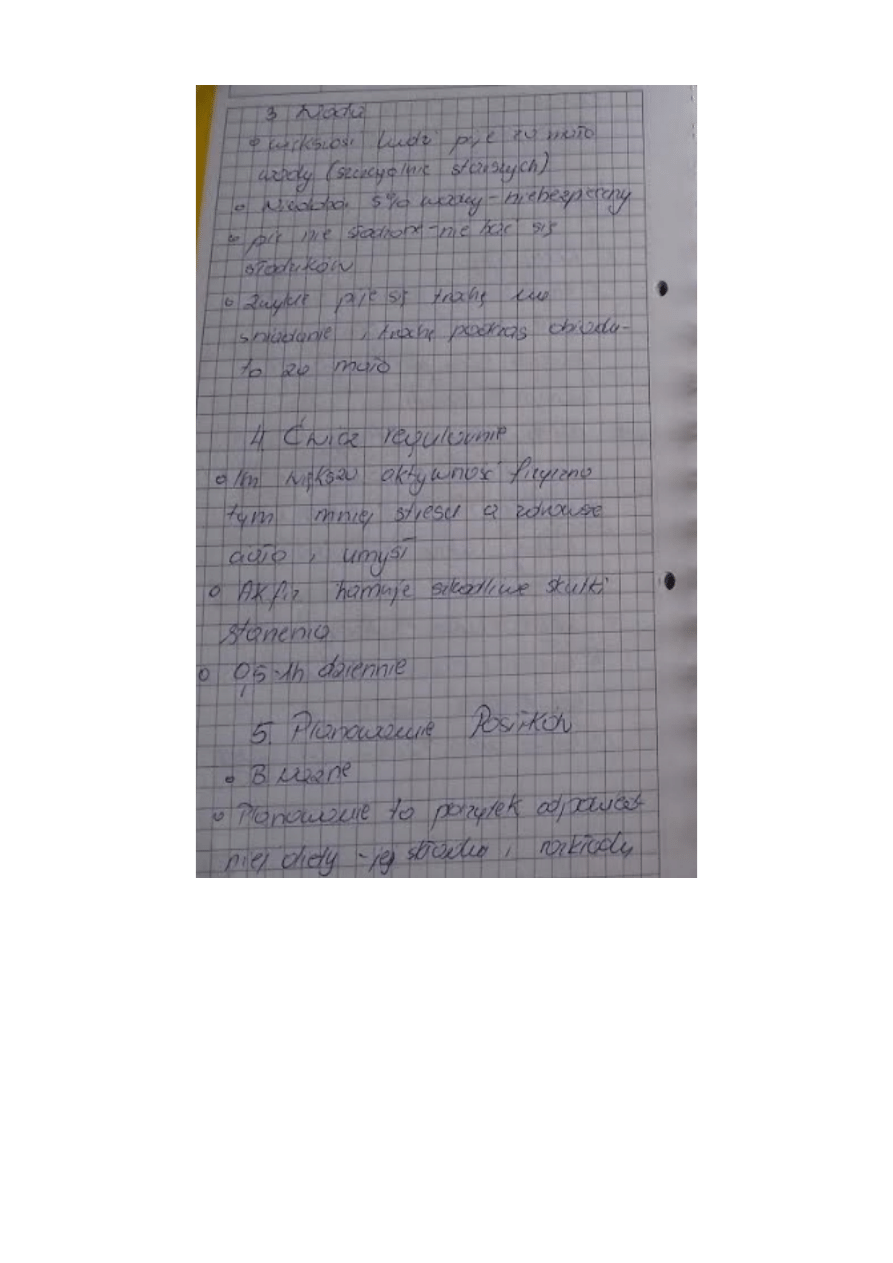 3 Woda
• większość ludzi pije za mało
wody (szczególnie starszych)
• Niedobór 5% wody - niebezpieczny
• pić nie słodzone - nie bać się
słodzików
• Zwykle pije się trochę na
śniadanie, trochę podczas obiadu -
to za mało
4 Ćwicz regularnie
• Im większa aktywność fizyczna
tym mniej stresu a zdrowsze
ciało i umysł
• Ak fiz hamuje szkodliwe skutki
starzenia
• 0,5-1h dziennie
5. Planowanie Posiłków
• B ważne
• Planowanie to początek odpowied
niej diety - jej składu i rozkładu